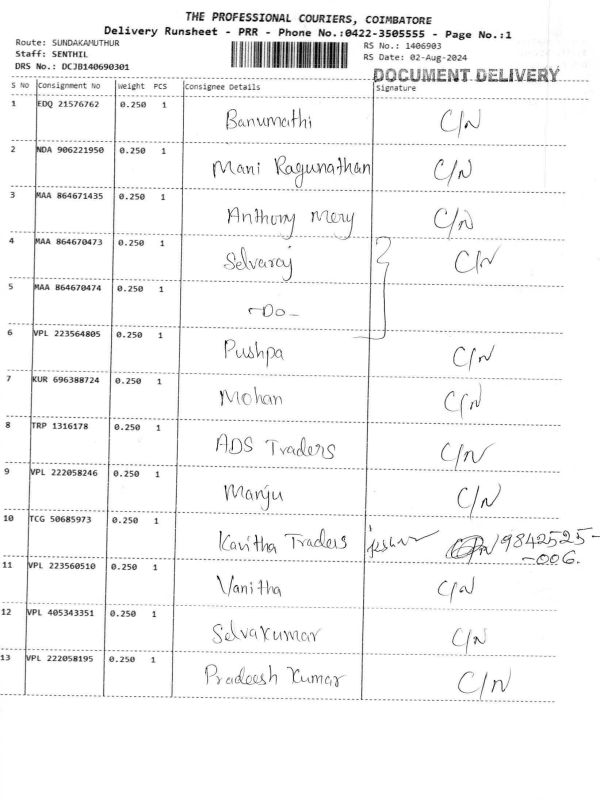 THE PROFESSIONAL COURIERS, COIMBATORE
Delivery Runsheet - PRR - Phone No.:0422-3505555 - Page No.:1
Route: SUNDAKAMUTHUR
Staff: SENTHIL
DRS No.: DCJB140690301
RS No.: 1406903
RS Date: 02-Aug-2024
DOCUMENT DELIVERY
S No Consignment No Weight PCS Consignee Details Signature
1 EDQ 21576762 0.250 1 Banumathi C/N
2 NDA 906221950 0.250 1 Mani Ragunathan C/N
3 MAA 864671435 0.250 1 Anthony Mery C/N
4 MAA 864670473 0.250 1 Selvaraj C/N
5 MAA 864670474 0.250 1 -Do-
6 VPL 223564805 0.250 1 Pushpa C/N
7 KUR 696388724 0.250 1 Mohan C/N
8 TRP 1316178 0.250 1 ADS Traders C/N
9 VPL 222058246 0.250 1 Manju C/N
10 TCG 50685973 0.250 1 Kavitha Traders 9842525-
-006.
11 VPL 223560510 0.250 1 Vanitha C/N
12 VPL 405343351 0.250 1 Selvakumar C/N
13 VPL 222058195 0.250 1 Pradeesh Kumar C/N